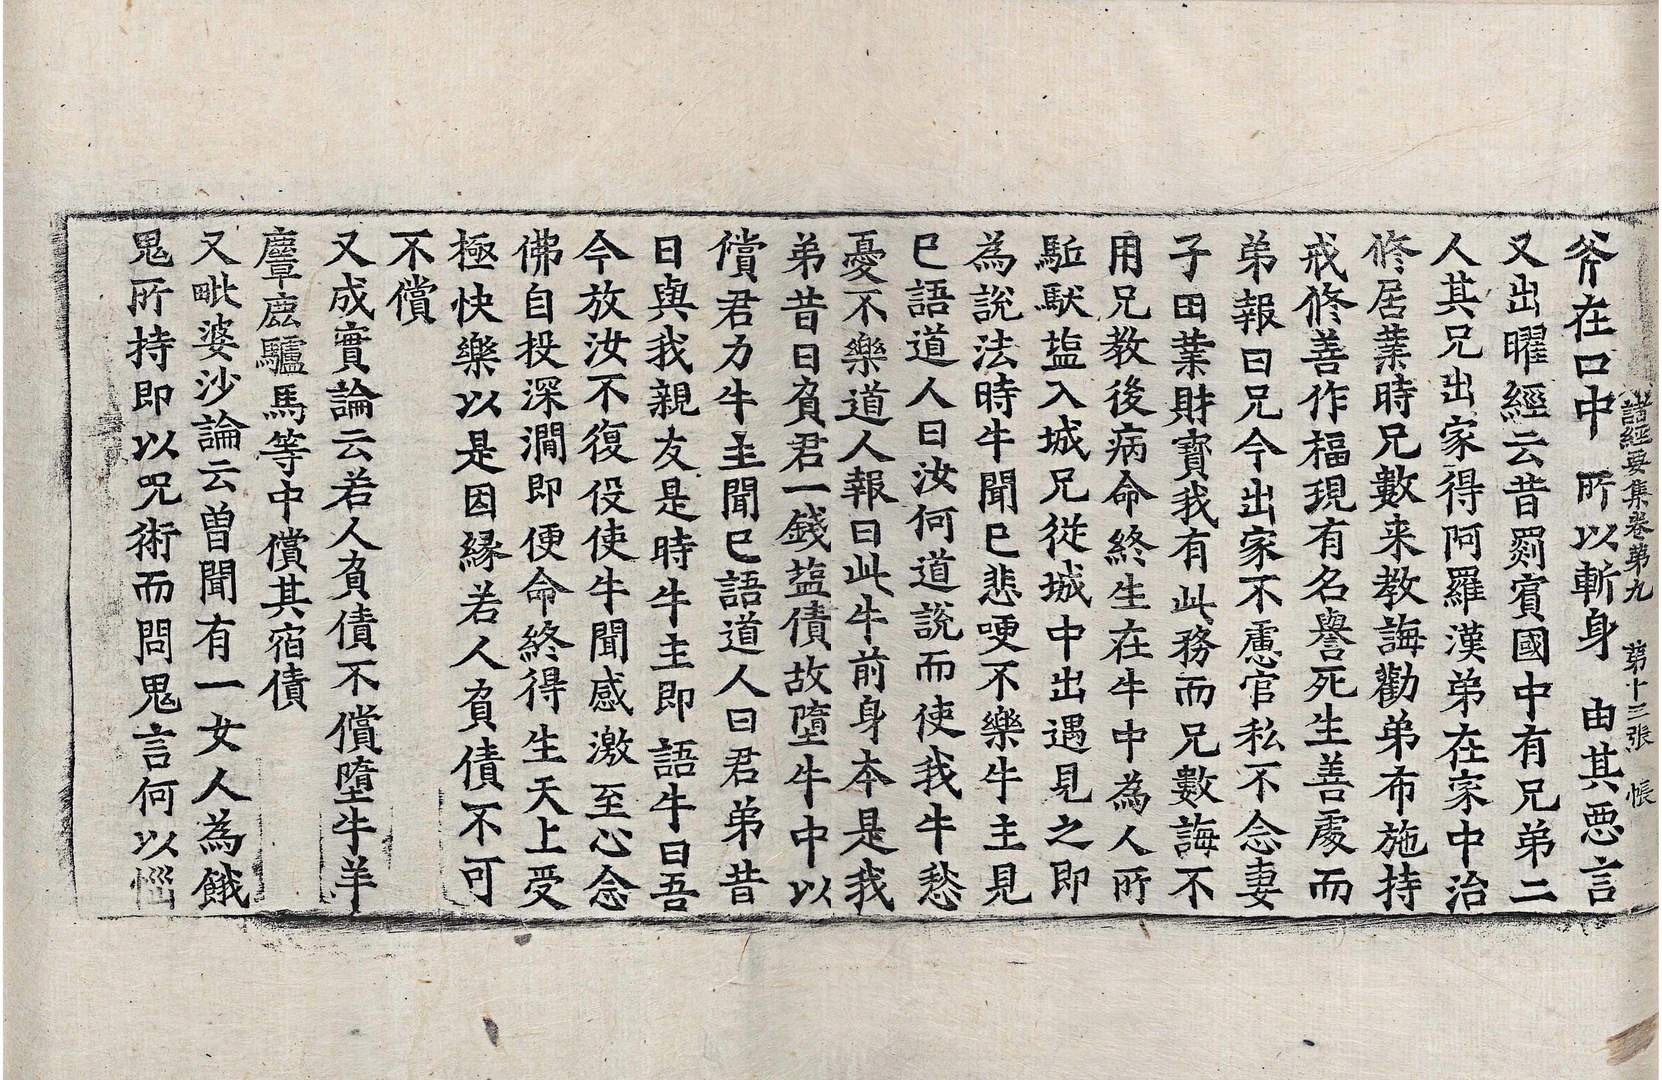 諸經要集卷第九　第十三張　悵
斧在口中　所以斬身　由其惡言
又出曜經云昔罽賓國中有兄弟二
人其兄出家得阿羅漢弟在家中治
修居業時兄數来教誨勸弟布施持
戒修善作福現有名譽死生善處而
弟報曰兄今出家不慮官私不念妻
子田業財寶我有此務而兄數誨不
用兄教後病命終生在牛中為人所
駈馱塩入城兄從城中出遇見之即
為說法時牛聞已悲哽不樂牛主見
已語道人曰汝何道說而使我牛愁
憂不樂道人報曰此牛前身本是我
弟昔日負君一錢塩債故墮牛中以
償君力牛主聞已語道人曰君弟昔
日與我親友是時牛主即語牛曰吾
今放汝不復役使牛聞感激至心念
佛自投深澗即便命終得生天上受
極快樂以是因緣若人負債不可
不償
又成實論云若人負債不償墮牛羊
麞鹿驢馬等中償其宿債
又毗婆沙論云曾聞有一女人為餓
鬼所持即以呪術而問鬼言何以惱